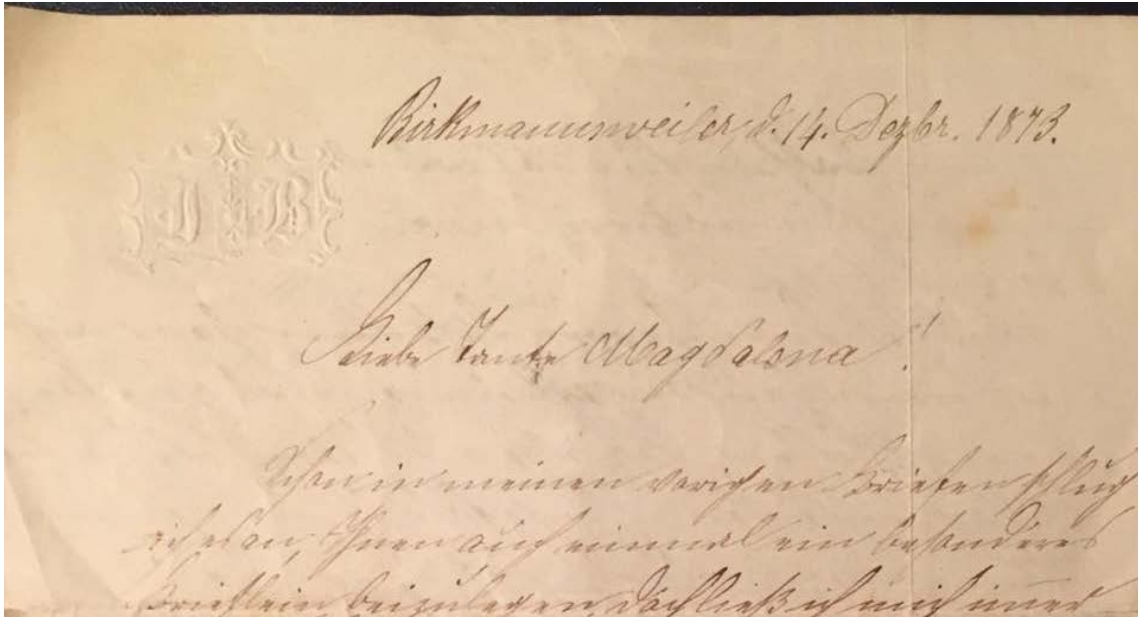 J B
Birkmannsweiler, d. 14. Dezbr. 1873.
Liebe Tante Magdalena!
Schon in meinen vorigen Briefen schlug
ich es an, Ihnen auch einmal ein besonderes
Brieflein beizulegen, doch ließ ich mich immer